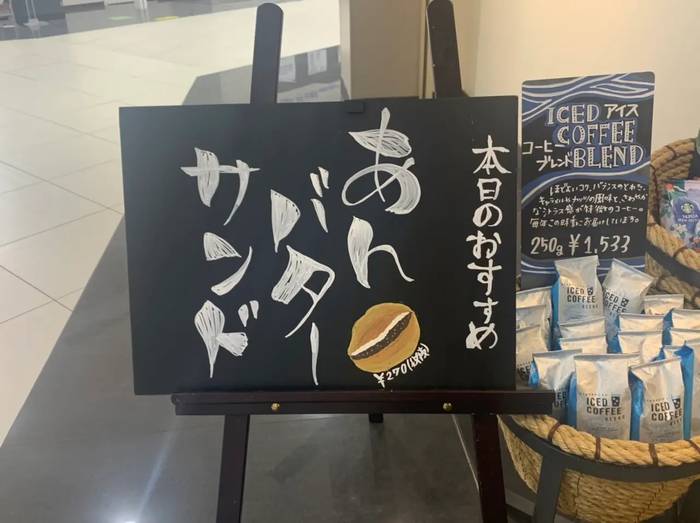 本日のおすすめ
あん
バター
サンド
¥270(税抜)
ICED アイス
COFFEE
コーヒー
ブレンド BLEND
ほどよいコク、バランスのとれた、
キャラメルやナッツの風味と、さわやか
なシトラス感が特徴のコーヒー。
250g ¥1,533
ICED
COFFEE
BLEND
ICED
COFFEE
ICED
COFFEE
BLEND
ICED
COFFEE
BLEND